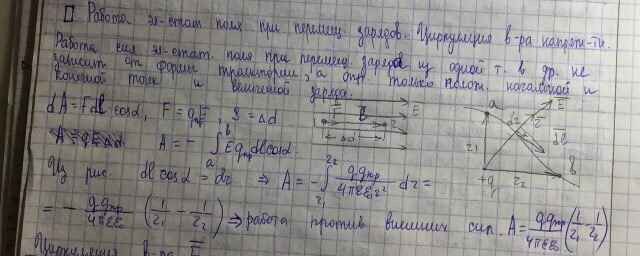 Работа эл-стат. поля при перемещ. зарядов. Циркуляция в-ра напряж-ти.
Работа сил эл-стат. поля при перемещ. зарядов из одной т. в др. не
зависит от формы траектории, а опр. только полож. начальной и
конечной точек и величиной заряда.
dA = Fdl·cosα, F = qпрE, S = Δd
A = qEΔd A = - ∫ₐᵇ Eqпр dl cosα.
Из рис. dl cosα = dr ⇒ A = - ∫ᵣ₁ʳ² qqпр/4πεε₀r² dr =
= - qqпр/4πεε₀ (1/r₁ - 1/r₂) ⇒ работа против внешних сил. A = qqпр/4πεε₀ (1/r₁ - 1/r₂)
Циркуляция в-ра E
1 2 E
Δd
a E
dl
r₁ r₂ b
+q